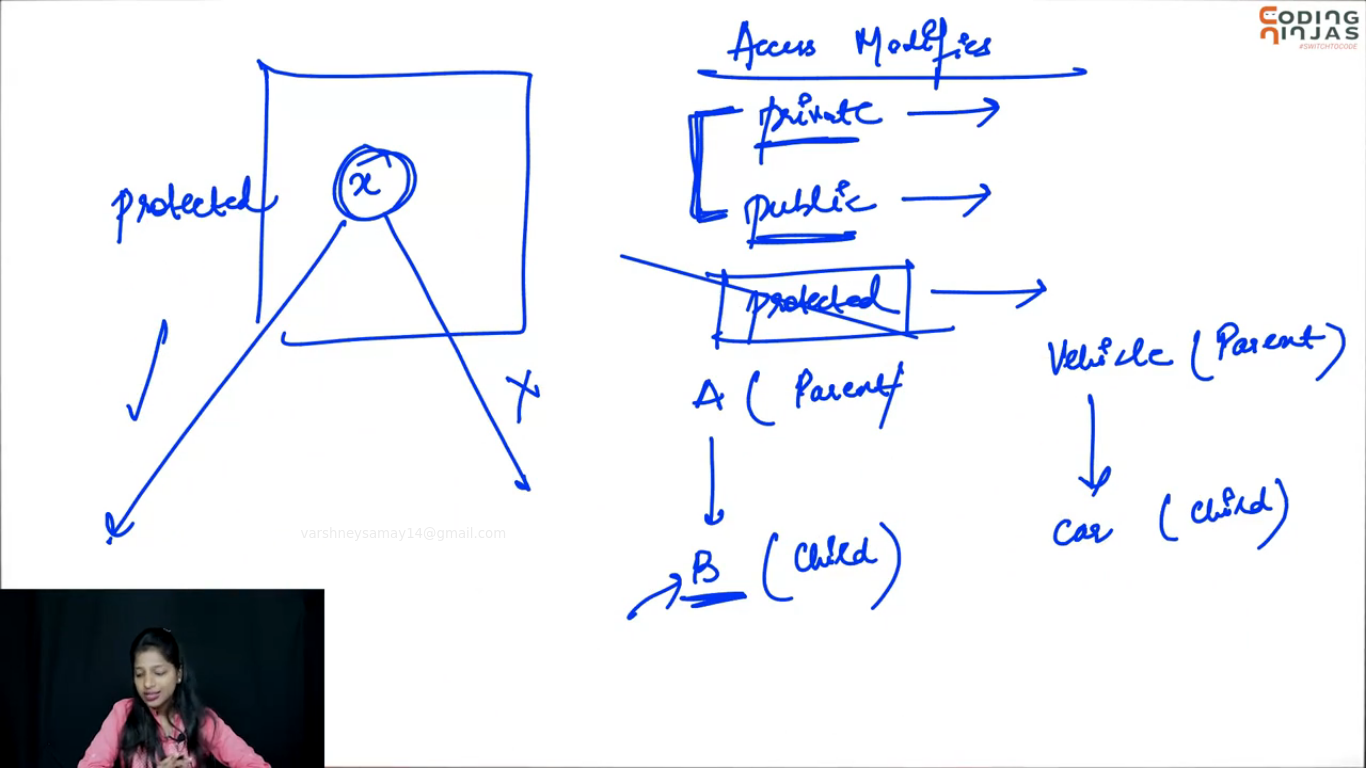 CODING
NINJAS
#SWITCHTOCODE
Access Modifies
private
public
protected
protected
x
A (Parent)
Vehicle (Parent)
B (Child)
Car (Child)
varshneysamay14@gmail.com